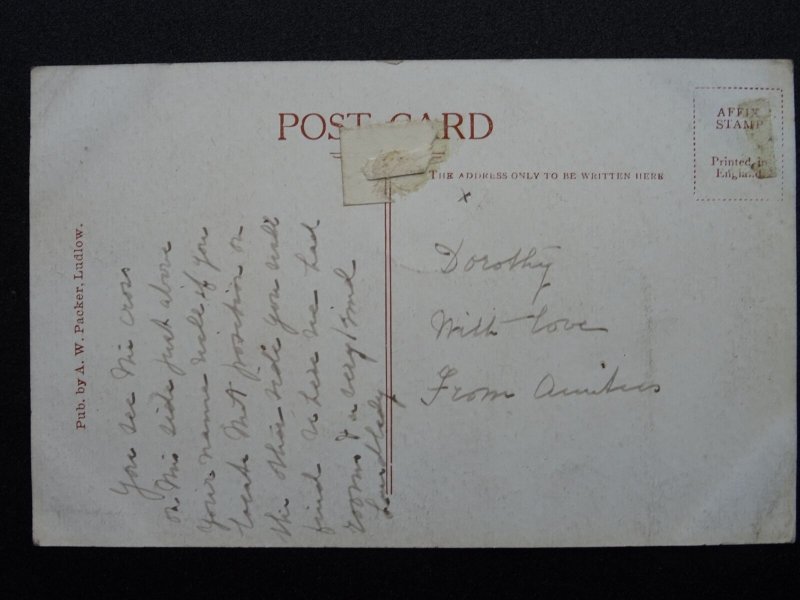 POST CARD
THE ADDRESS ONLY TO BE WRITTEN HERE
AFFIX
STAMP
Printed in
England.
Pub. by A. W. Packer, Ludlow.
You see the cross
on this side just above
your name well if you
locate that position on
the other side you will
find where we had
rooms & a very kind
Landlady
x
Dorothy
With love
From Aunties